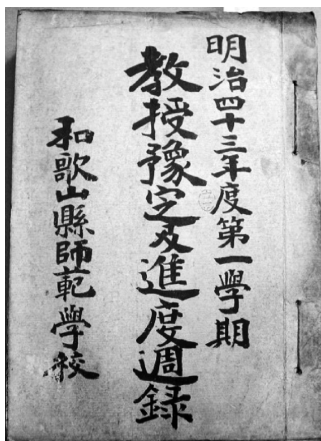 明治四十三年度第一學期
教授豫定及進度週録
和歌山縣師範學校